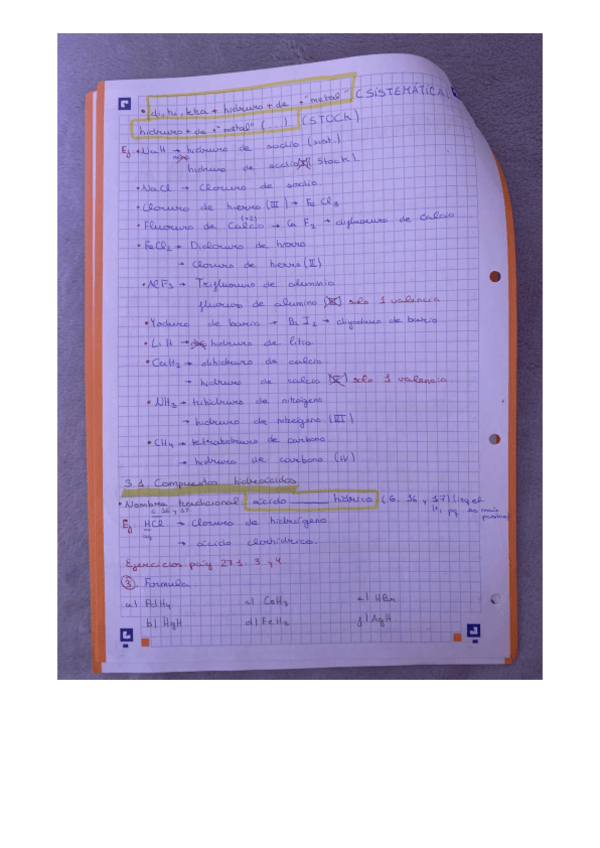 • di, tri, tetra + hidruro + de + "metal" (SISTEMÁTICA)
hidruro + de + "metal" (...) (STOCK)
Ej • NaH → hidruro de sodio (sist.)
hidruro de sodio (I) (Stock).
• NaCl → Cloruro de sodio
• Cloruro de hierro (III) → FeCl3
• Fluoruro de Calcio (+2) → CaF2 → difluoruro de calcio
• FeCl2 → Dicloruro de hierro
→ Cloruro de hierro (II)
• AlF3 → Trifluoruro de aluminio
fluoruro de aluminio solo 1 valencia
• Yoduro de bario → BaI2 → diyoduro de bario
• LiH → hidruro de litio
• CaH2 → dihidruro de calcio
→ hidruro de calcio solo 1 valencia
• NH3 → trihidruro de nitrógeno
→ hidruro de nitrógeno (III)
• CH4 → tetrahidruro de carbono
→ hidruro de carbono (IV)
3.1 Compuestos hidrácidos
• Nombre tradicional ácido ______ hídrico (G. 16 y 17) (izq el
H, pq es más
positivo)
G 16 y 17
Ej HCl → Cloruro de hidrógeno
aq
→ ácido clorhídrico.
Ejercicios pág 271. 3 y 4
③ Formula
a) PdH4 c) CoH3 e) HBr
b) HgH d) FeH2 f) AgH